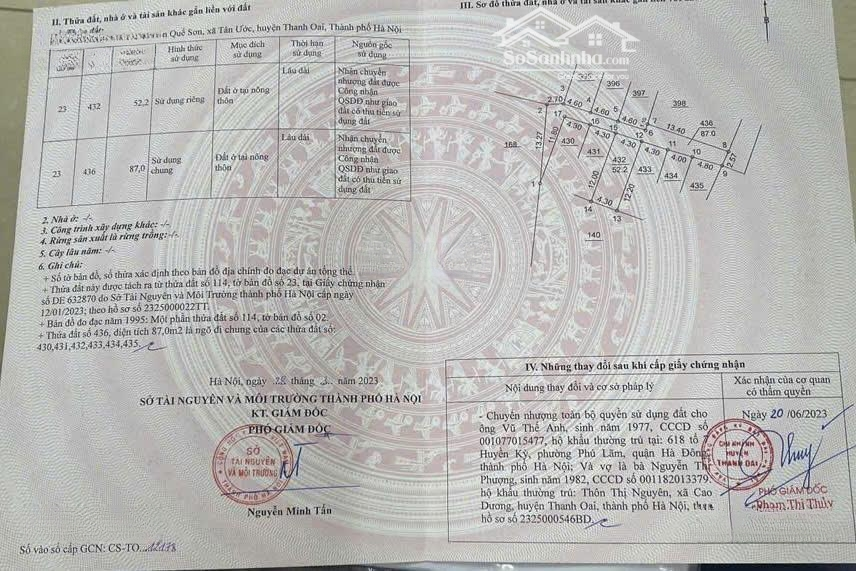 II. Thửa đất, nhà ở và tài sản khác gắn liền với đất
Quế Sơn, xã Tân Ước, huyện Thanh Oai, Thành phố Hà Nội
Hình thức sử dụng
Mục đích sử dụng
Thời hạn sử dụng
Nguồn gốc sử dụng
23
432
52,2
Sử dụng riêng
Đất ở tại nông thôn
Lâu dài
Nhận chuyển nhượng đất được Công nhận QSDĐ như giao đất có thu tiền sử dụng đất
23
436
87,0
Sử dụng chung
Đất ở tại nông thôn
Lâu dài
Nhận chuyển nhượng đất được Công nhận QSDĐ như giao đất có thu tiền sử dụng đất
2. Nhà ở: -/-
3. Công trình xây dựng khác: -/-
4. Rừng sản xuất là rừng trồng: -/-
5. Cây lâu năm: -/-
6. Ghi chú:
+ Số tờ bản đồ, số thửa xác định theo bản đồ địa chính đo đạc dự án tổng thể.
+ Thửa đất này được tách ra từ thửa đất số 114, tờ bản đồ số 23, tại Giấy chứng nhận
số DE 632870 do Sở Tài Nguyên và Môi Trường thành phố Hà Nội cấp ngày
12/01/2023; theo hồ sơ số 2325000022TT.
+ Bản đồ đo đạc năm 1995: Một phần thửa đất số 114, tờ bản đồ số 02.
+ Thửa đất số 436, diện tích 87,0m2 là ngõ đi chung của các thửa đất số:
430,431,432,433,434,435.
Hà Nội, ngày 28 tháng 3 năm 2023
SỞ TÀI NGUYÊN VÀ MÔI TRƯỜNG THÀNH PHỐ HÀ NỘI
KT. GIÁM ĐỐC
PHÓ GIÁM ĐỐC
SỞ
TÀI NGUYÊN
VÀ MÔI TRƯỜNG
THÀNH PHỐ HÀ NỘI
Nguyễn Minh Tấn
Số vào sổ cấp GCN: CS-TO...12178
III. Sơ đồ thửa đất, nhà ở và tài sản khác gắn liền với đất
B
SoSanNha.com
395
396
397
398
3
2
2.70
4.60
4
4.60
5
4.60
6
7
13.40
436
87.0
8
12.57
9
17
4.30
16
4.30
15
4.30
12
4.30
11
4.00
10
4.80
168
13.27
11.80
430
431
432
52.2
433
434
435
1
12.00
12.20
14
4.30
13
140
IV. Những thay đổi sau khi cấp giấy chứng nhận
Nội dung thay đổi và cơ sở pháp lý
Xác nhận của cơ quan
có thẩm quyền
- Chuyển nhượng toàn bộ quyền sử dụng đất cho
ông Vũ Thế Anh, sinh năm 1977, CCCD số
001077015477, hộ khẩu thường trú tại: 618 tổ 7
Huyền Kỳ, phường Phú Lãm, quận Hà Đông,
thành phố Hà Nội; Và vợ là bà Nguyễn Thị
Phượng, sinh năm 1982, CCCD số 001182013379,
hộ khẩu thường trú: Thôn Thị Nguyên, xã Cao
Dương, huyện Thanh Oai, thành phố Hà Nội, theo
hồ sơ số 2325000546BD.
Ngày 20/06/2023
CHI NHÁNH
HUYỆN
THANH OAI
PHÓ GIÁM ĐỐC
Phạm Thị Thủy